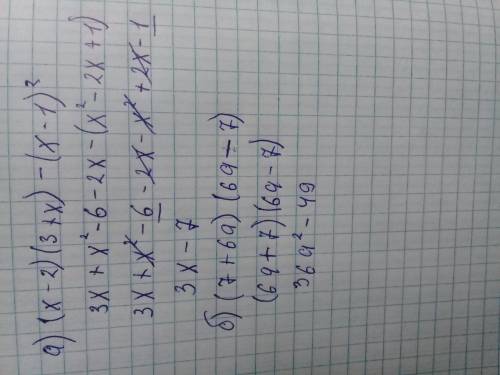 а) (x-2)(3+x)-(x-1)²
3x+x²-6-2x-(x²-2x+1)
3x+x²-6-2x-x²+2x-1
3x-7
б) (7+6a)(6a-7)
(6a+7)(6a-7)
36a²-49